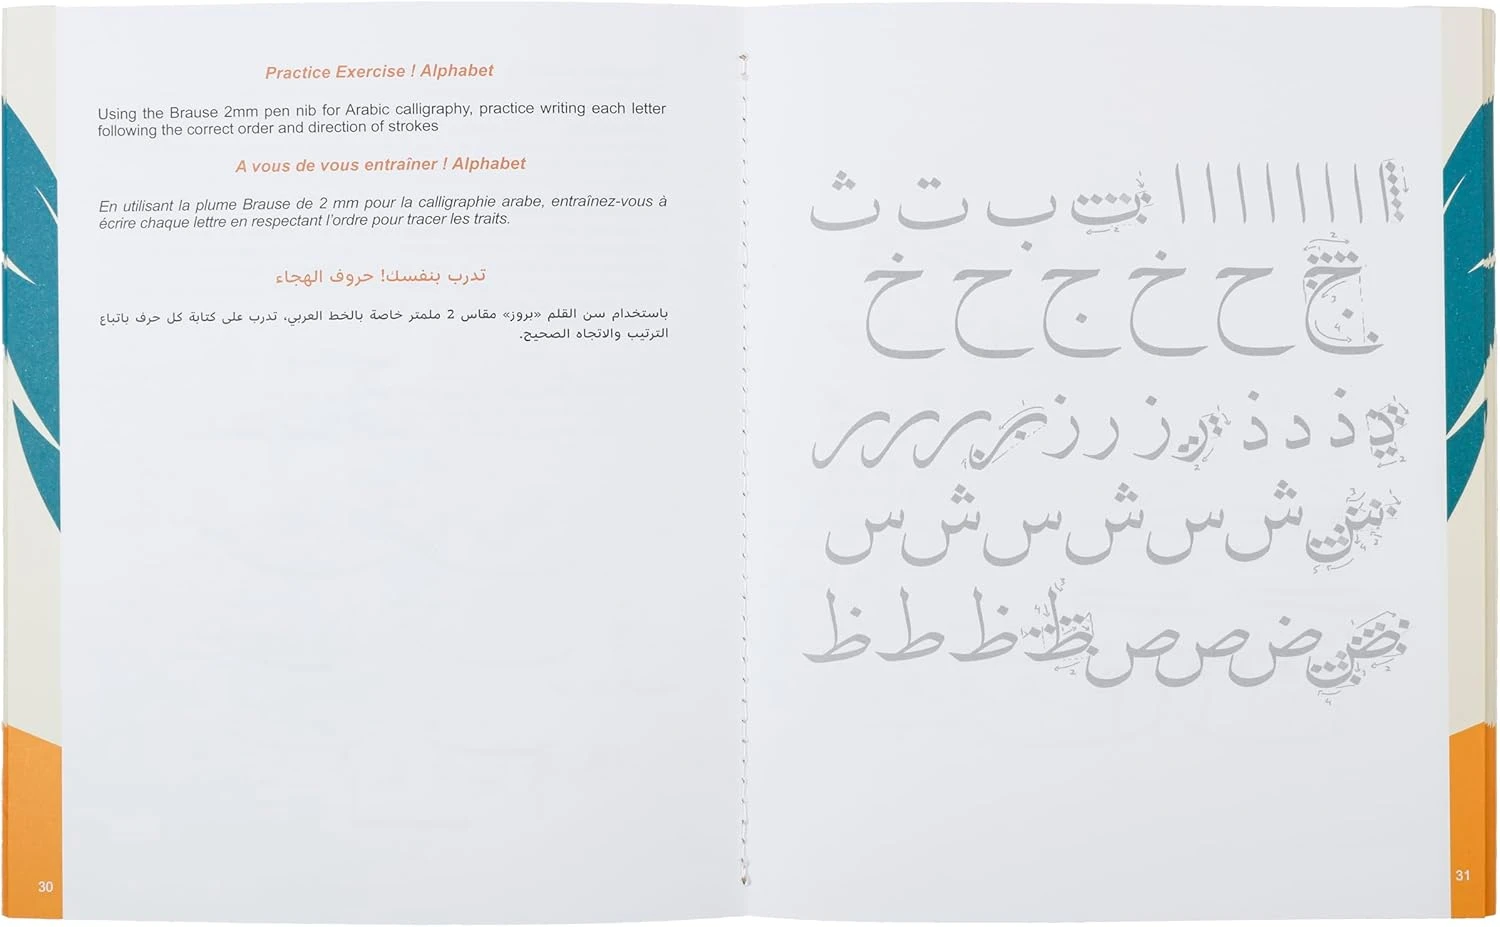 Practice Exercise ! Alphabet
Using the Brause 2mm pen nib for Arabic calligraphy, practice writing each letter
following the correct order and direction of strokes
A vous de vous entraîner ! Alphabet
En utilisant la plume Brause de 2 mm pour la calligraphie arabe, entraînez-vous à
écrire chaque lettre en respectant l'ordre pour tracer les traits.
تدرب بنفسك! حروف الهجاء
باستخدام سن القلم «بروز» مقاس 2 ملمتر خاصة بالخط العربي، تدرب على كتابة كل حرف باتباع
الترتيب والاتجاه الصحيح.
30
ا ا ا ا ا ا ا ا ب ت ث
خ ح خ ج ح خ
ذ د ذ ز ر ز ر ر ر
ش س ش س ش س
ض ص ص ظ ظ ط ظ
31